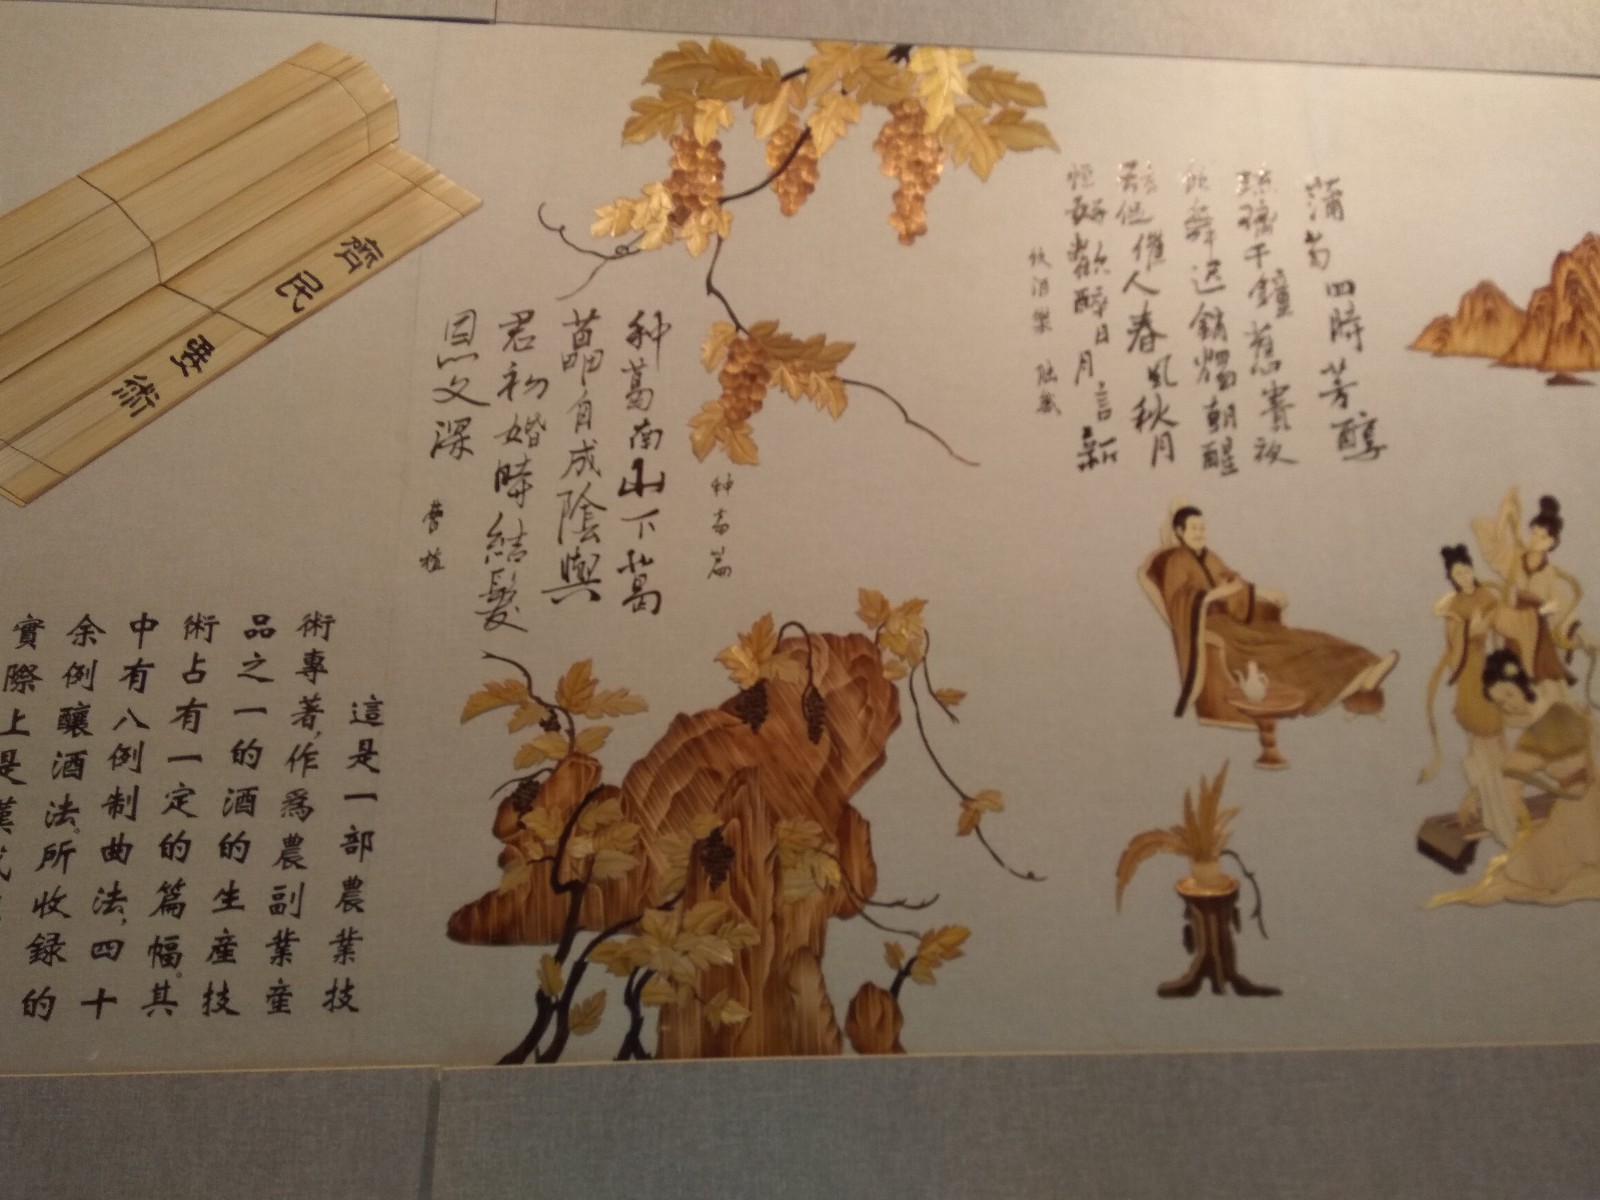 蒲萄四時芳醇
琉璃千鐘舊賓夜
飲舞遲銷燭朝醒
絃促催人春風秋月
恒好歡醉日月言新
飲酒樂 陸機
种葛篇
种葛南山下葛
藟自成陰與
君初婚時結髮
恩义深
曹植
齊民要術
這是一部農業技
術專著,作爲農副業産
品之一的酒的生産技
術占有一定的篇幅。其
中有八例制曲法,四十
余例釀酒法。所收録的
實際上是漢